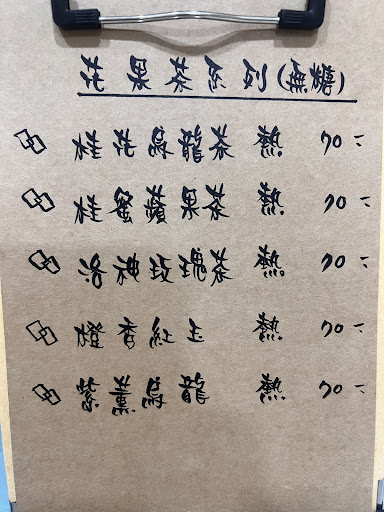 花果茶系列(無糖)
桂花烏龍茶 熱 70元
桂蜜蘋果茶 熱 70元
洛神玫瑰茶 熱 70元
橙香紅玉 熱 70元
紫薰烏龍 熱 70元